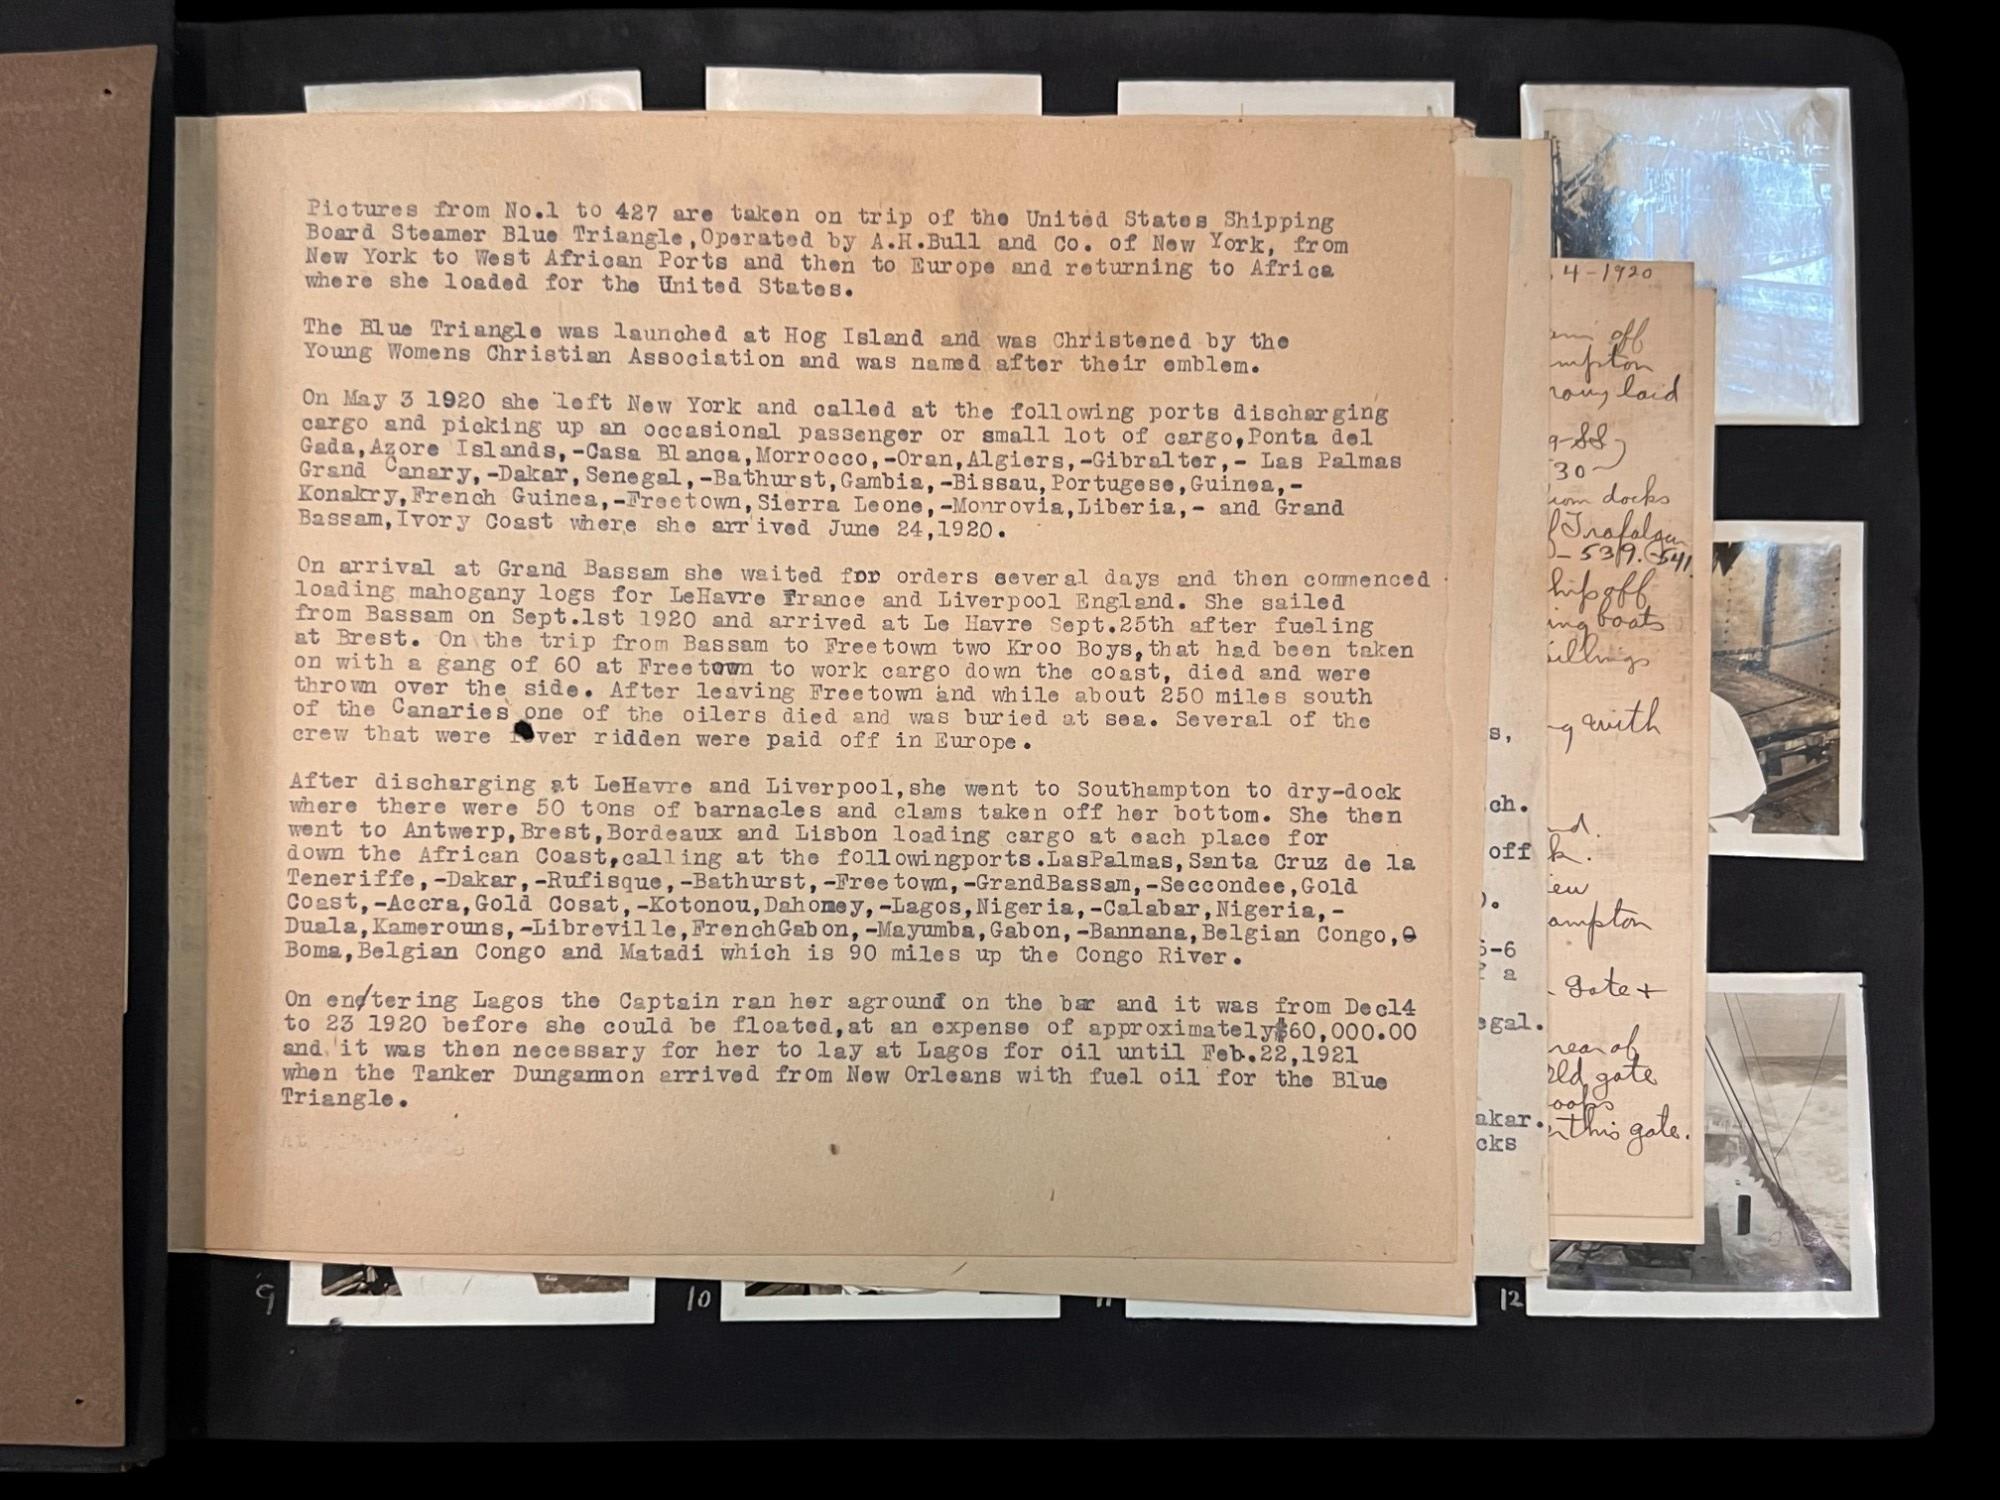 Pictures from No.1 to 427 are taken on trip of the United States Shipping
Board Steamer Blue Triangle,Operated by A.H.Bull and Co. of New York, from
New York to West African Ports and then to Europe and returning to Africa
where she loaded for the United States.
The Blue Triangle was launched at Hog Island and was Christened by the
Young Womens Christian Association and was named after their emblem.
On May 3 1920 she left New York and called at the following ports discharging
cargo and picking up an occasional passenger or small lot of cargo,Ponta del
Gada,Azore Islands,-Casa Blanca,Morrocco,-Oran,Algiers,-Gibralter,- Las Palmas
Grand Canary,-Dakar,Senegal,-Bathurst,Gambia,-Bissau,Portugese,Guinea,-
Konakry,French Guinea,-Freetown,Sierra Leone,-Monrovia,Liberia,- and Grand
Bassam,Ivory Coast where she arrived June 24,1920.
On arrival at Grand Bassam she waited for orders several days and then commenced
loading mahogany logs for LeHavre France and Liverpool England. She sailed
from Bassam on Sept.1st 1920 and arrived at Le Havre Sept.25th after fueling
at Brest. On the trip from Bassam to Freetown two Kroo Boys,that had been taken
on with a gang of 60 at Freetown to work cargo down the coast, died and were
thrown over the side. After leaving Freetown and while about 250 miles south
of the Canaries one of the oilers died and was buried at sea. Several of the
crew that were fever ridden were paid off in Europe.
After discharging at LeHavre and Liverpool,she went to Southampton to dry-dock
where there were 50 tons of barnacles and clams taken off her bottom. She then
went to Antwerp,Brest,Bordeaux and Lisbon loading cargo at each place for
down the African Coast,calling at the followingports.LasPalmas,Santa Cruz de la
Teneriffe,-Dakar,-Rufisque,-Bathurst,-Freetown,-GrandBassam,-Seccondee,Gold
Coast,-Accra,Gold Cosat,-Kotonou,Dahomey,-Lagos,Nigeria,-Calabar,Nigeria,-
Duala,Kamerouns,-Libreville,FrenchGabon,-Mayumba,Gabon,-Bannana,Belgian Congo,
Boma,Belgian Congo and Matadi which is 90 miles up the Congo River.
On entering Lagos the Captain ran her aground on the bar and it was from Dec14
to 23 1920 before she could be floated,at an expense of approximately$60,000.00
and it was then necessary for her to lay at Lagos for oil until Feb.22,1921
when the Tanker Dungannon arrived from New Orleans with fuel oil for the Blue
Triangle.
s,
ch.
off
5-6
a
egal.
akar.
cks
4-1920
off
mpton
laid
30
docks
Trafalgar
- 539. 541
ship off
ing boats
with
d.
k.
iew
ampton
gate +
rear of
old gate
oops
this gate.
9
10
11
12